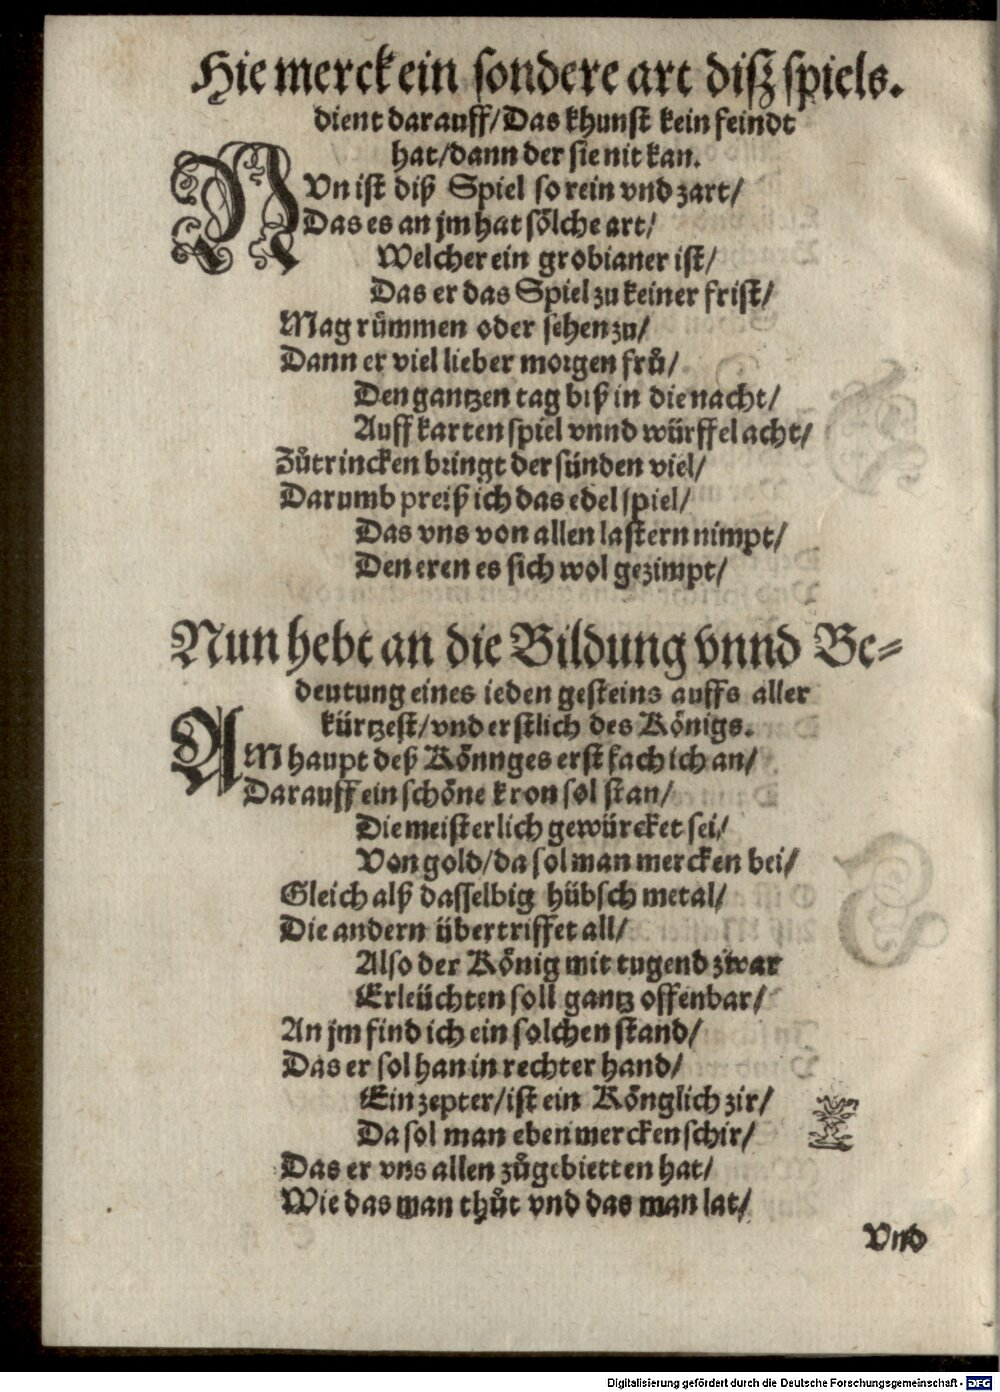 Hie merck ein sondere art disz spiels.
dient darauff/Das khunst kein feindt
hat/dann der sie nit kan.
NVn ist diß Spiel so rein vnd zart/
Das es an jm hat soͤlche art/
Welcher ein grobianer ist/
Das er das Spiel zu keiner frist/
Mag ruͤmmen oder sehen zu/
Dann er viel lieber morgen fruͦ/
Den gantzen tag biß in die nacht/
Auff karten spiel vnnd würffel acht/
Zuͦtrincken bringt der sünden viel/
Darumb preiß ich das edel spiel/
Das vns von allen lastern nimpt/
Den eren es sich wol gezimpt/
Nun hebt an die Bildung vnnd Be⸗
deutung eines ieden gesteins auffs aller
kürtzest/vnd erstlich des Koͤnigs.
AM haupt deß Koͤnnges erst fach ich an/
Darauff ein schoͤne kron sol stan/
Die meisterlich gewürcket sei/
Von gold/da sol man mercken bei/
Gleich alß dasselbig hübsch metal/
Die andern übertriffet all/
Also der Koͤnig mit tugend zwar
Erleüchten soll gantz offenbar/
An jm find ich ein solchen stand/
Das er sol han in rechter hand/
Ein zepter/ist ein Koͤnglich zir/
Da sol man eben mercken schir/
Das er vns allen zuͦgebietten hat/
Wie das man thuͦt vnd das man lat/
Vnd
Digitalisierung gefördert durch die Deutsche Forschungsgemeinschaft - DFG